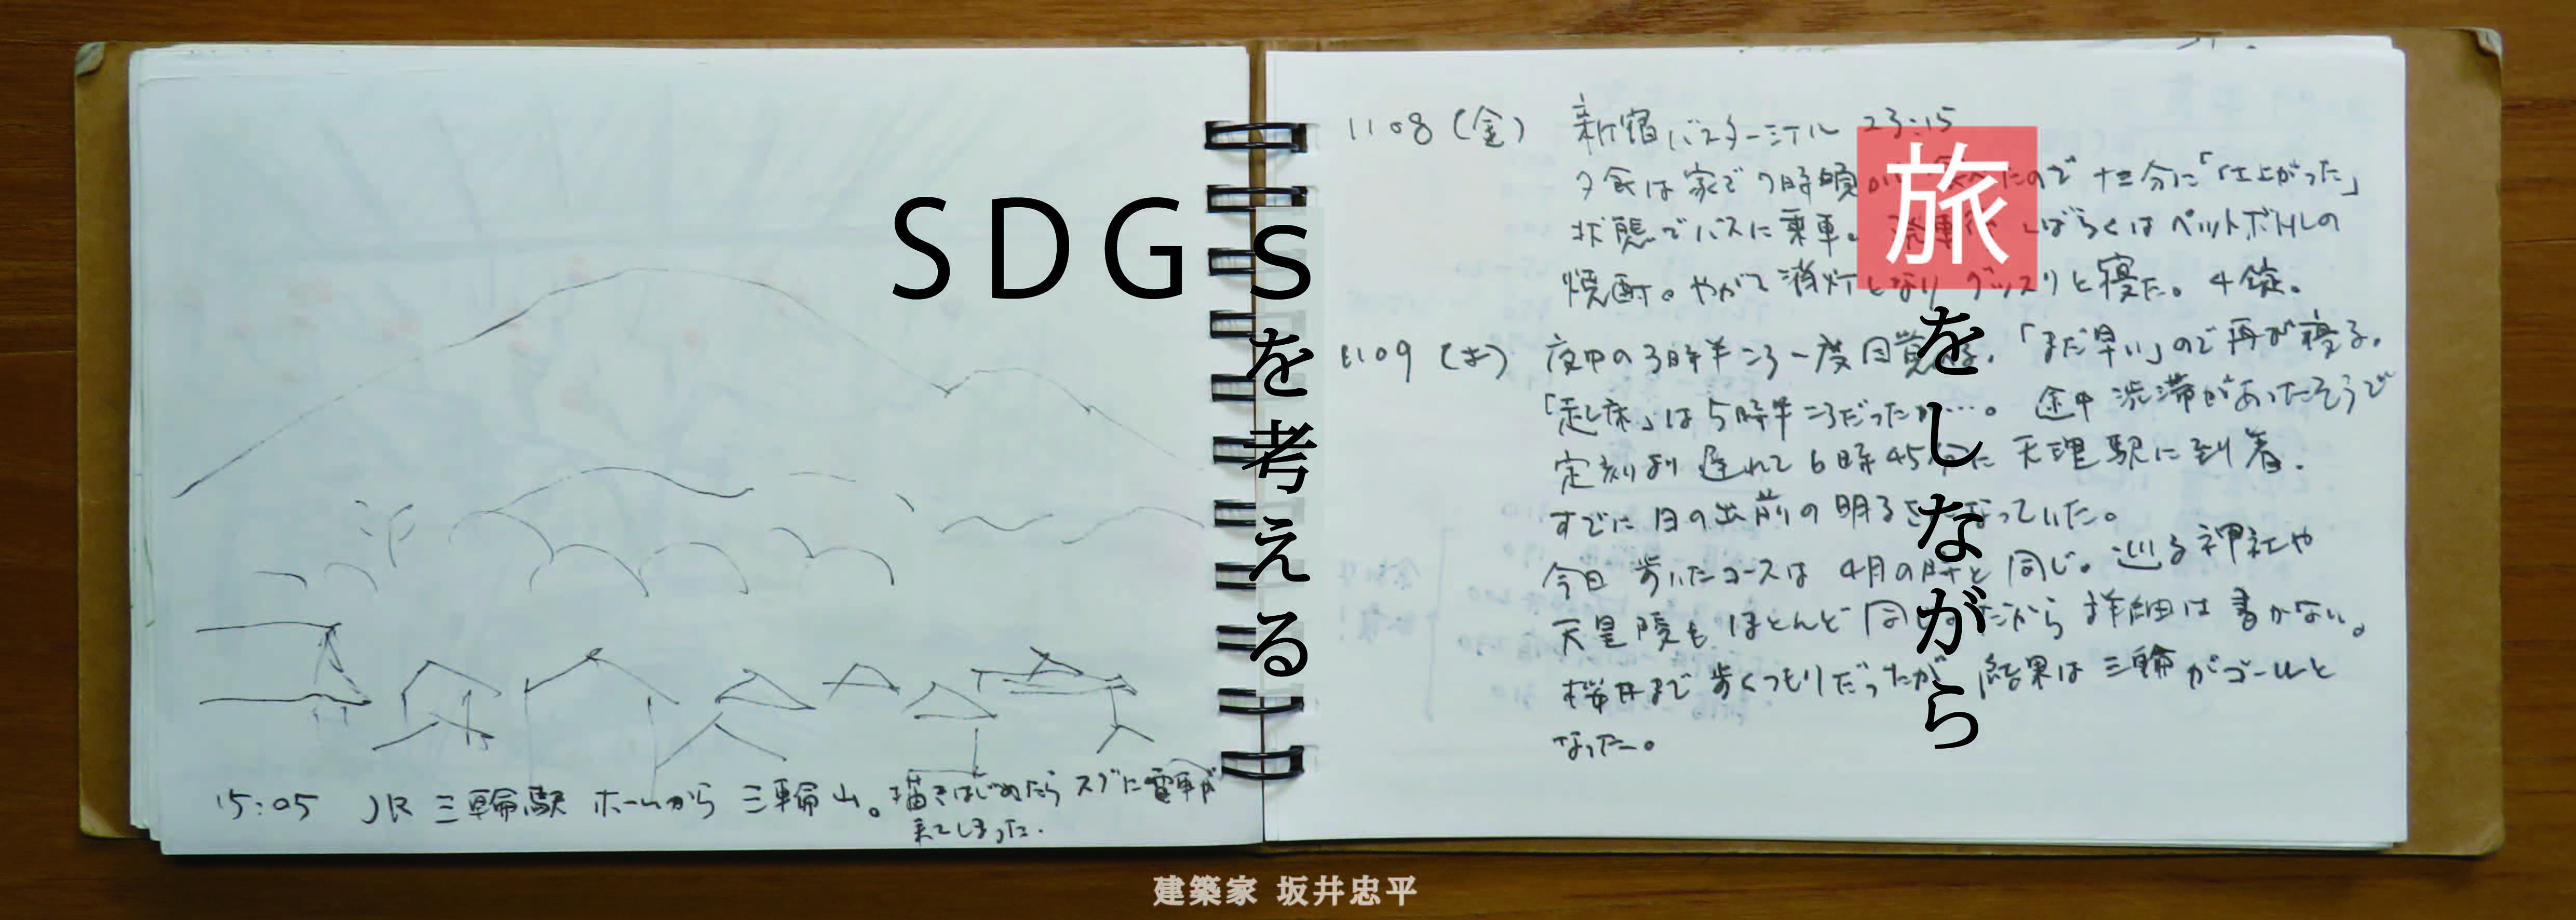 旅をしながら
SDGsを考える
15:05 JR 三輪駅 ホームから 三輪山。描きはじめたら スグに電車が
来てしまった.
1108 (金) 新宿バスターミナル 23:15
夕食は家で7時頃 たので 十二分に「仕上がった」
状態でバスに乗車。発車後 しばらくは ペットボトルの
焼酎。やがて消灯となり グッスリと寝た。4錠。
1109 (土) 夜中の3時半ころ一度目覚める.「まだ早い」ので再び寝る.
「起床」は5時半ころだったか…。途中 渋滞があったそうで
定刻より 遅れて 6時45分に 天理駅に到着.
すでに 日の出前の明るさになっていた。
今日 歩いたコースは 4月の時と 同じ。巡る神社や
天皇陵も ほとんど同じだから 詳細は 書かない。
桜井まで 歩くつもりだったが 結果は 三輪がゴールと
なった。
建築家 坂井忠平